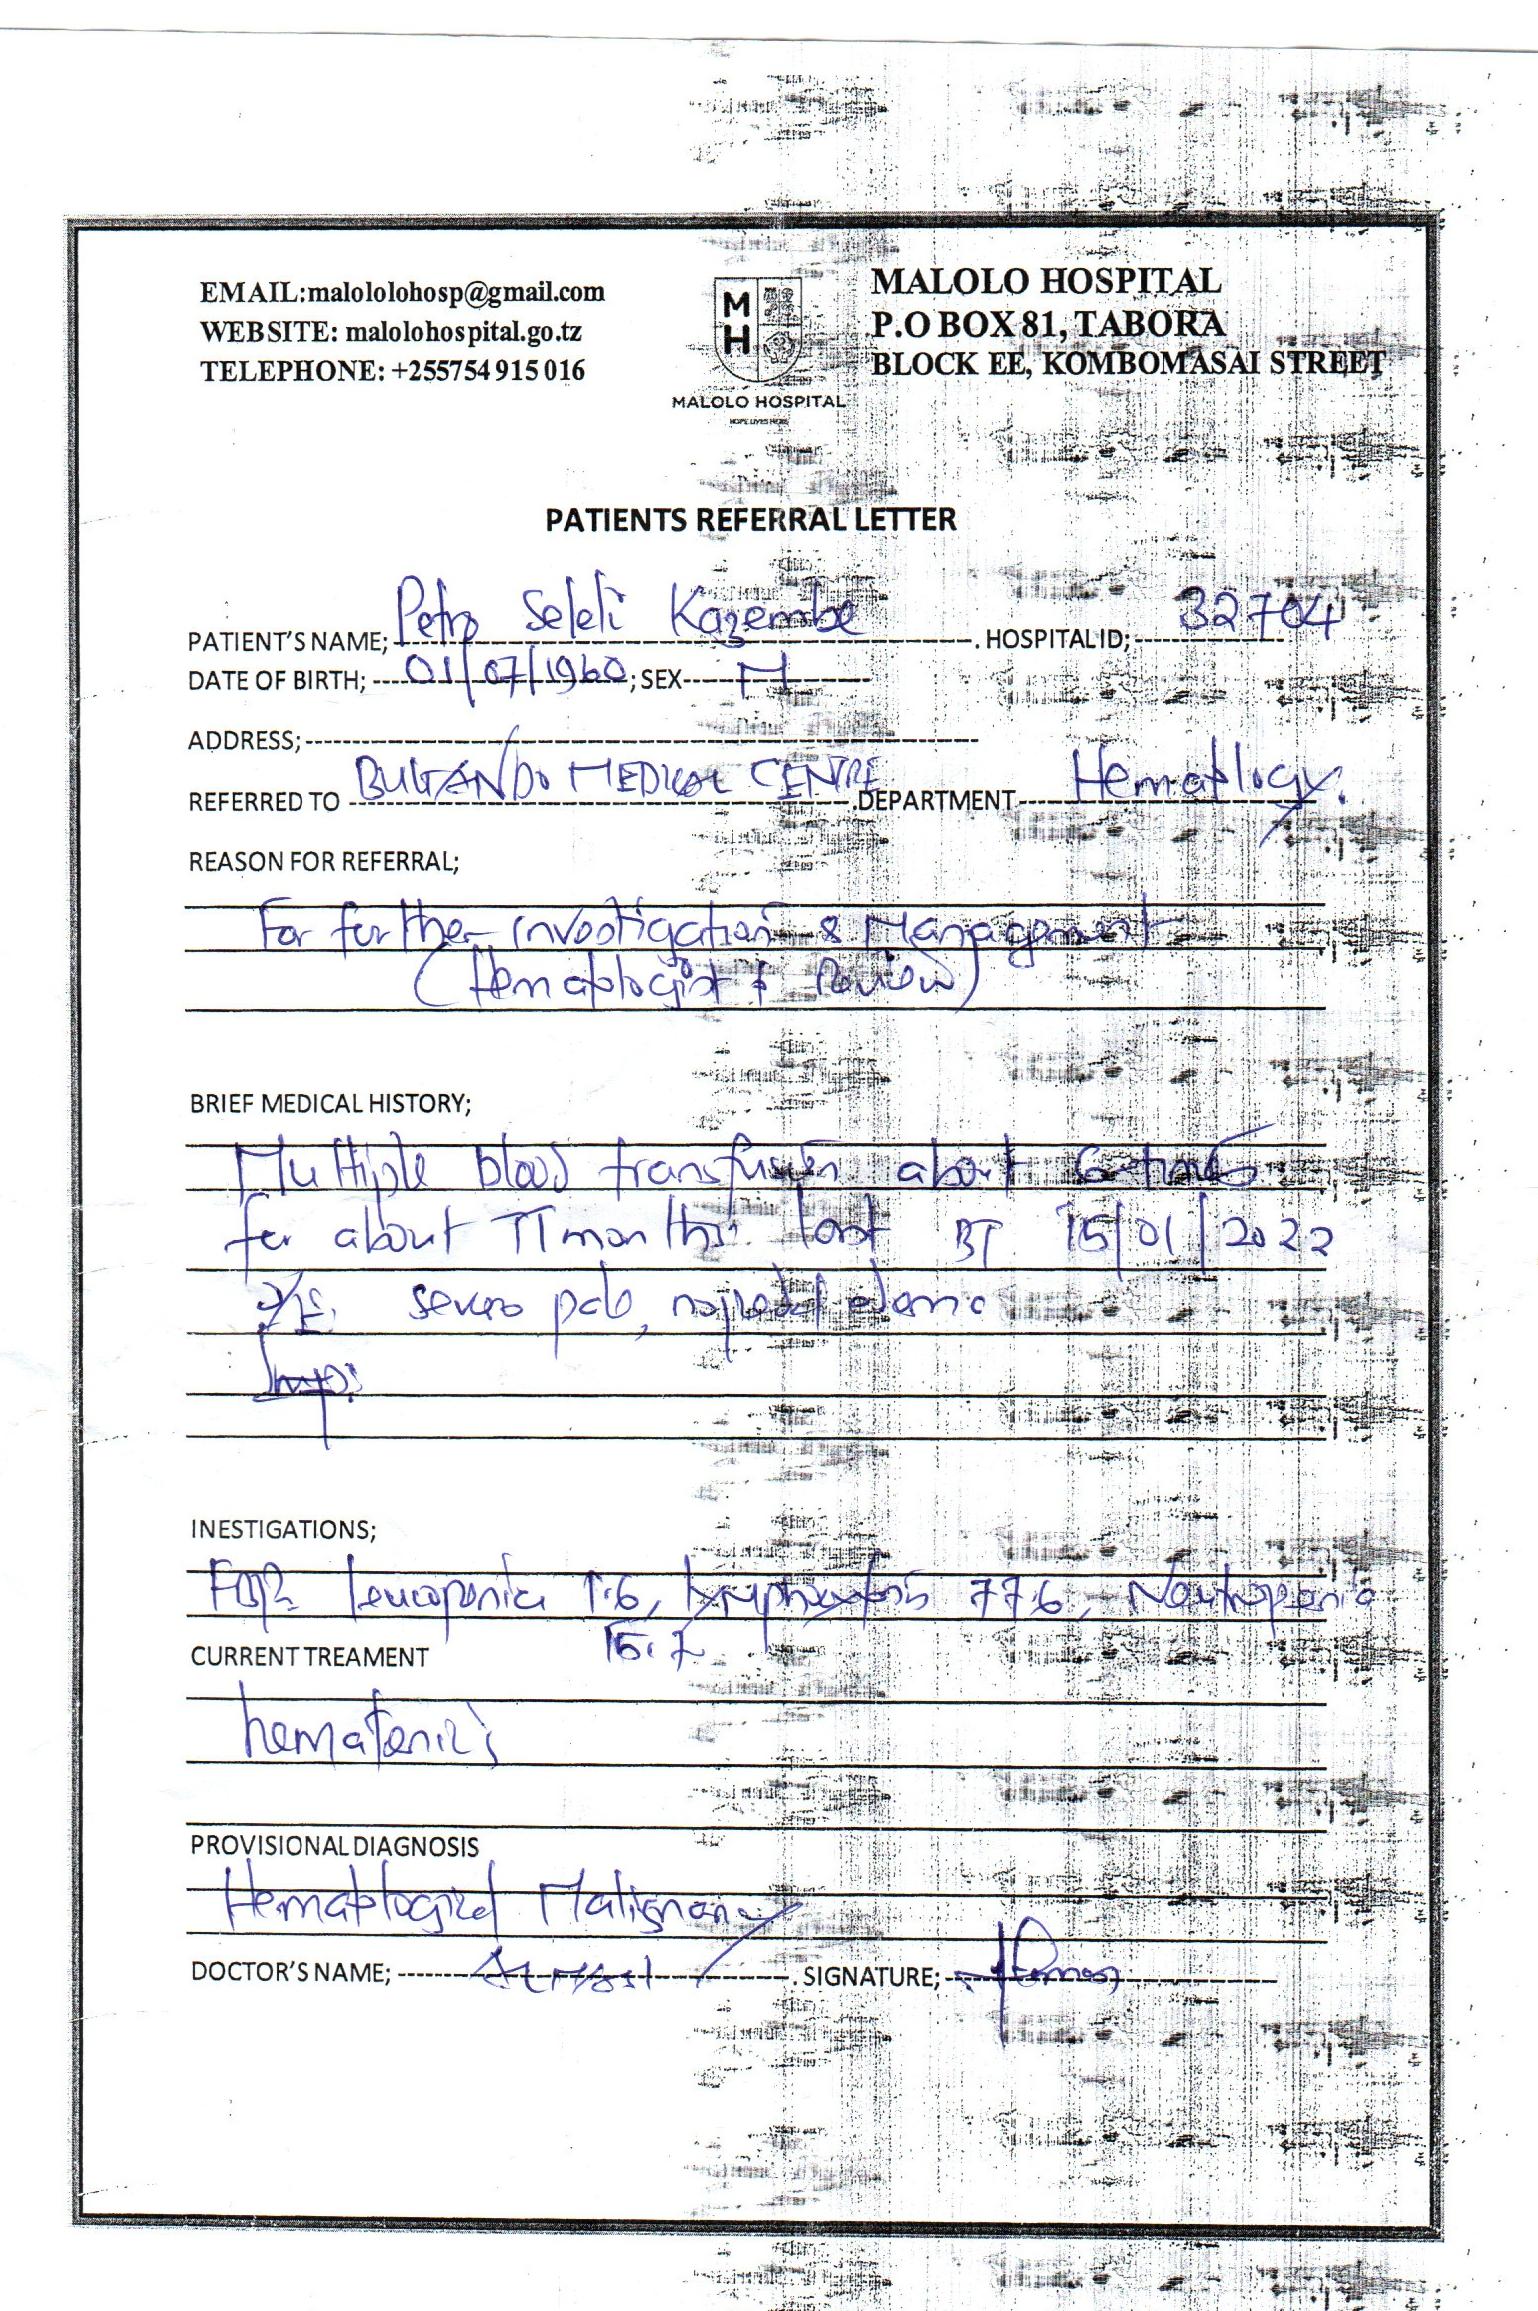 EMAIL:malololohosp@gmail.com
WEBSITE: malolohospital.go.tz
TELEPHONE: +255754 915 016
M
H
MALOLO HOSPITAL
HOPE LIVES HERE
MALOLO HOSPITAL
P.O BOX 81, TABORA
BLOCK EE, KOMBOMASAI STREET
PATIENTS REFERRAL LETTER
PATIENT'S NAME; Petro Seleli Kazembe . HOSPITAL ID; 32704
DATE OF BIRTH; 01/07/1960 ; SEX M
ADDRESS;
REFERRED TO BUGANDO MEDICAL CENTRE .DEPARTMENT Hematology.
REASON FOR REFERRAL;
For further investigation & Management
(Hematologist Review)
BRIEF MEDICAL HISTORY;
Multiple blood transfusion about 6 times
for about 11 months last BT 15/01/2022
O/E severe pale, no pedal edema
Imp:
INESTIGATIONS;
FBP: leucopenia 1.6, Lymphocytosis 77.6, Neutropenia
15.7
CURRENT TREAMENT
hematenics
PROVISIONAL DIAGNOSIS
Hematological Malignancy
DOCTOR'S NAME; . SIGNATURE;